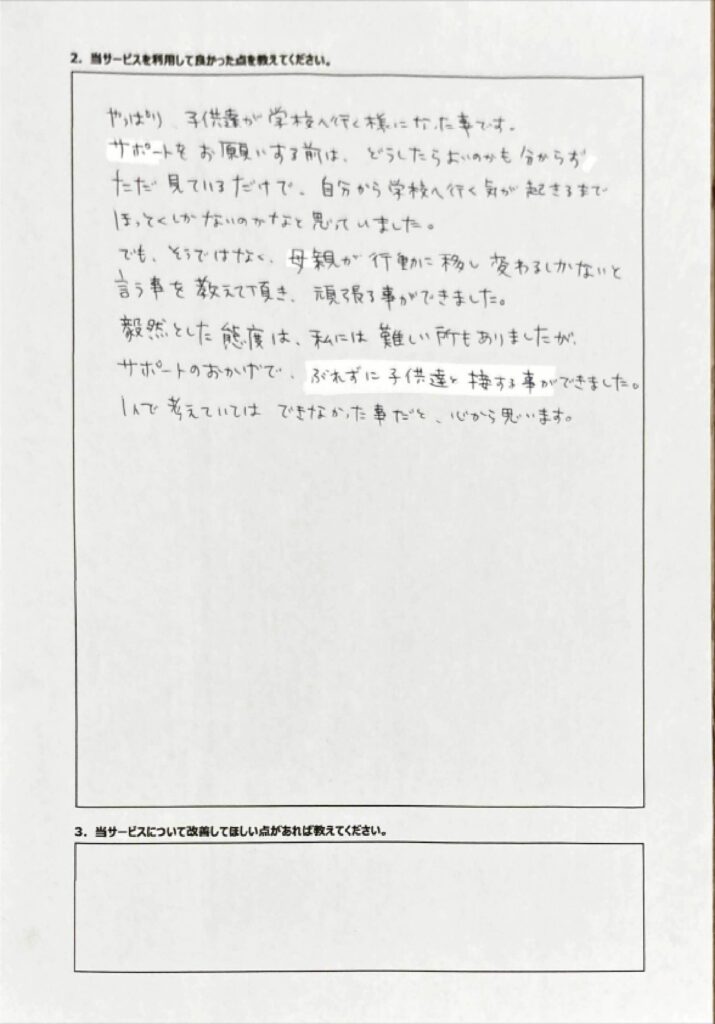 2. 当サービスを利用して良かった点を教えてください。
やっぱり、子供達が学校へ行く様になった事です。
サポートをお願いする前は、どうしたらよいのかも分からず
ただ見ているだけで、自分から学校へ行く気が起きるまで
ほっとくしかないのかなと思っていました。
でも、そうではなく、母親が行動に移し変わるしかないと
言う事を教えて頂き、頑張る事ができました。
毅然とした態度は、私には難しい所もありましたが、
サポートのおかげで、ぶれずに子供達と接する事ができました。
1人で考えていてはできなかった事だと、心から思います。
3. 当サービスについて改善してほしい点があれば教えてください。